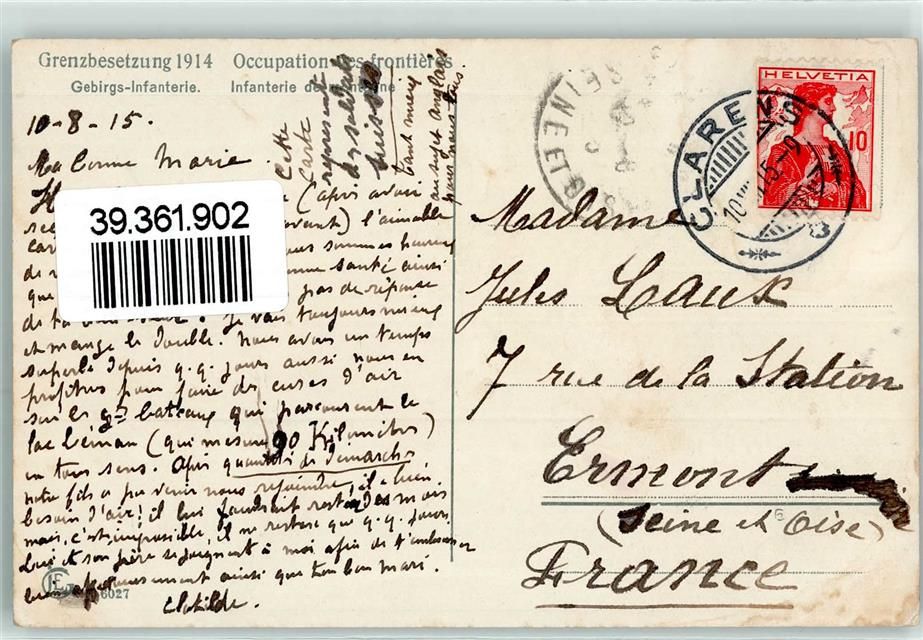 Grenzbesetzung 1914 Occupation des frontières
Gebirgs-Infanterie. Infanterie de montagne
Cette
Carte
représentant
des soldats
suisses
tant mieux
au sujet anglais
pour nous tous.
10-8-15.
Ma bonne Marie
(après avoir
l'aimable
nous sommes heureux
bonne santé ainsi
que pas de réponse
de ta Je vais toujours mieux
et mange le double. Nous avons un temps
superbe depuis q.q. jours aussi nous en
profitons pour faire des cures d'air
sur les gds bateaux qui parcourent le
lac Léman (qui mesure 90 Kilomètres)
en tous sens. Après quantité de démarches
notre fils a pu venir nous rejoindre; il a bien
besoin d'air! il lui faudrait rester des mois
mais, c'est impossible, il ne restera que q.q. jours.
Lui et son père se joignent à moi afin de t'embrasser
bien affectueusement ainsi que ton bon mari.
Clotilde.
6027
39.361.902
HELVETIA
10
CLARENS
10 VIII 15-9
Madame
Jules Laux
7 rue de la Station
Ermont
(Seine et Oise)
France